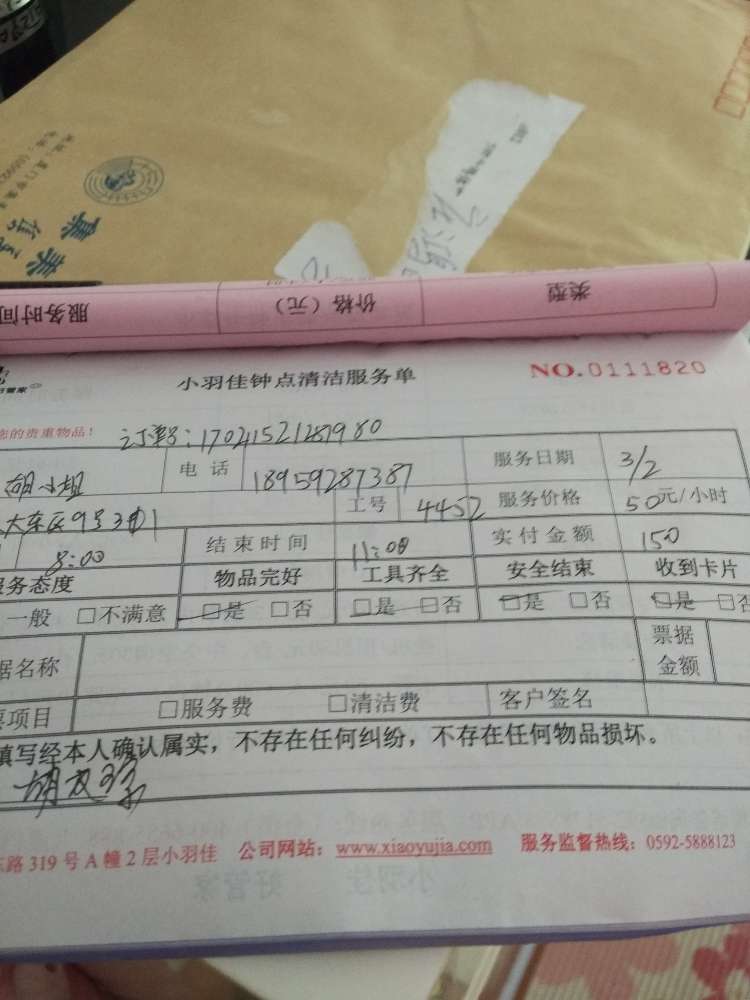 服务时间 价格（元） 类型
好管家
小羽佳钟点清洁服务单 NO.0111820
您的贵重物品！ 订单号：1702152128980
胡小姐 电话 18959287387 服务日期 3/2
大东区9号3 工号 4452 服务价格 50元/小时
8:00 结束时间 11:00 实付金额 150
服务态度 物品完好 工具齐全 安全结束 收到卡片
一般 □不满意 □是 □否 □是 □否 □是 □否 □是 □否
据名称 票据金额
票项目 □服务费 □清洁费 客户签名
填写经本人确认属实，不存在任何纠纷，不存在任何物品损坏。
东路319号A幢2层小羽佳 公司网站：www.xiaoyujia.com 服务监督热线：0592-5888123